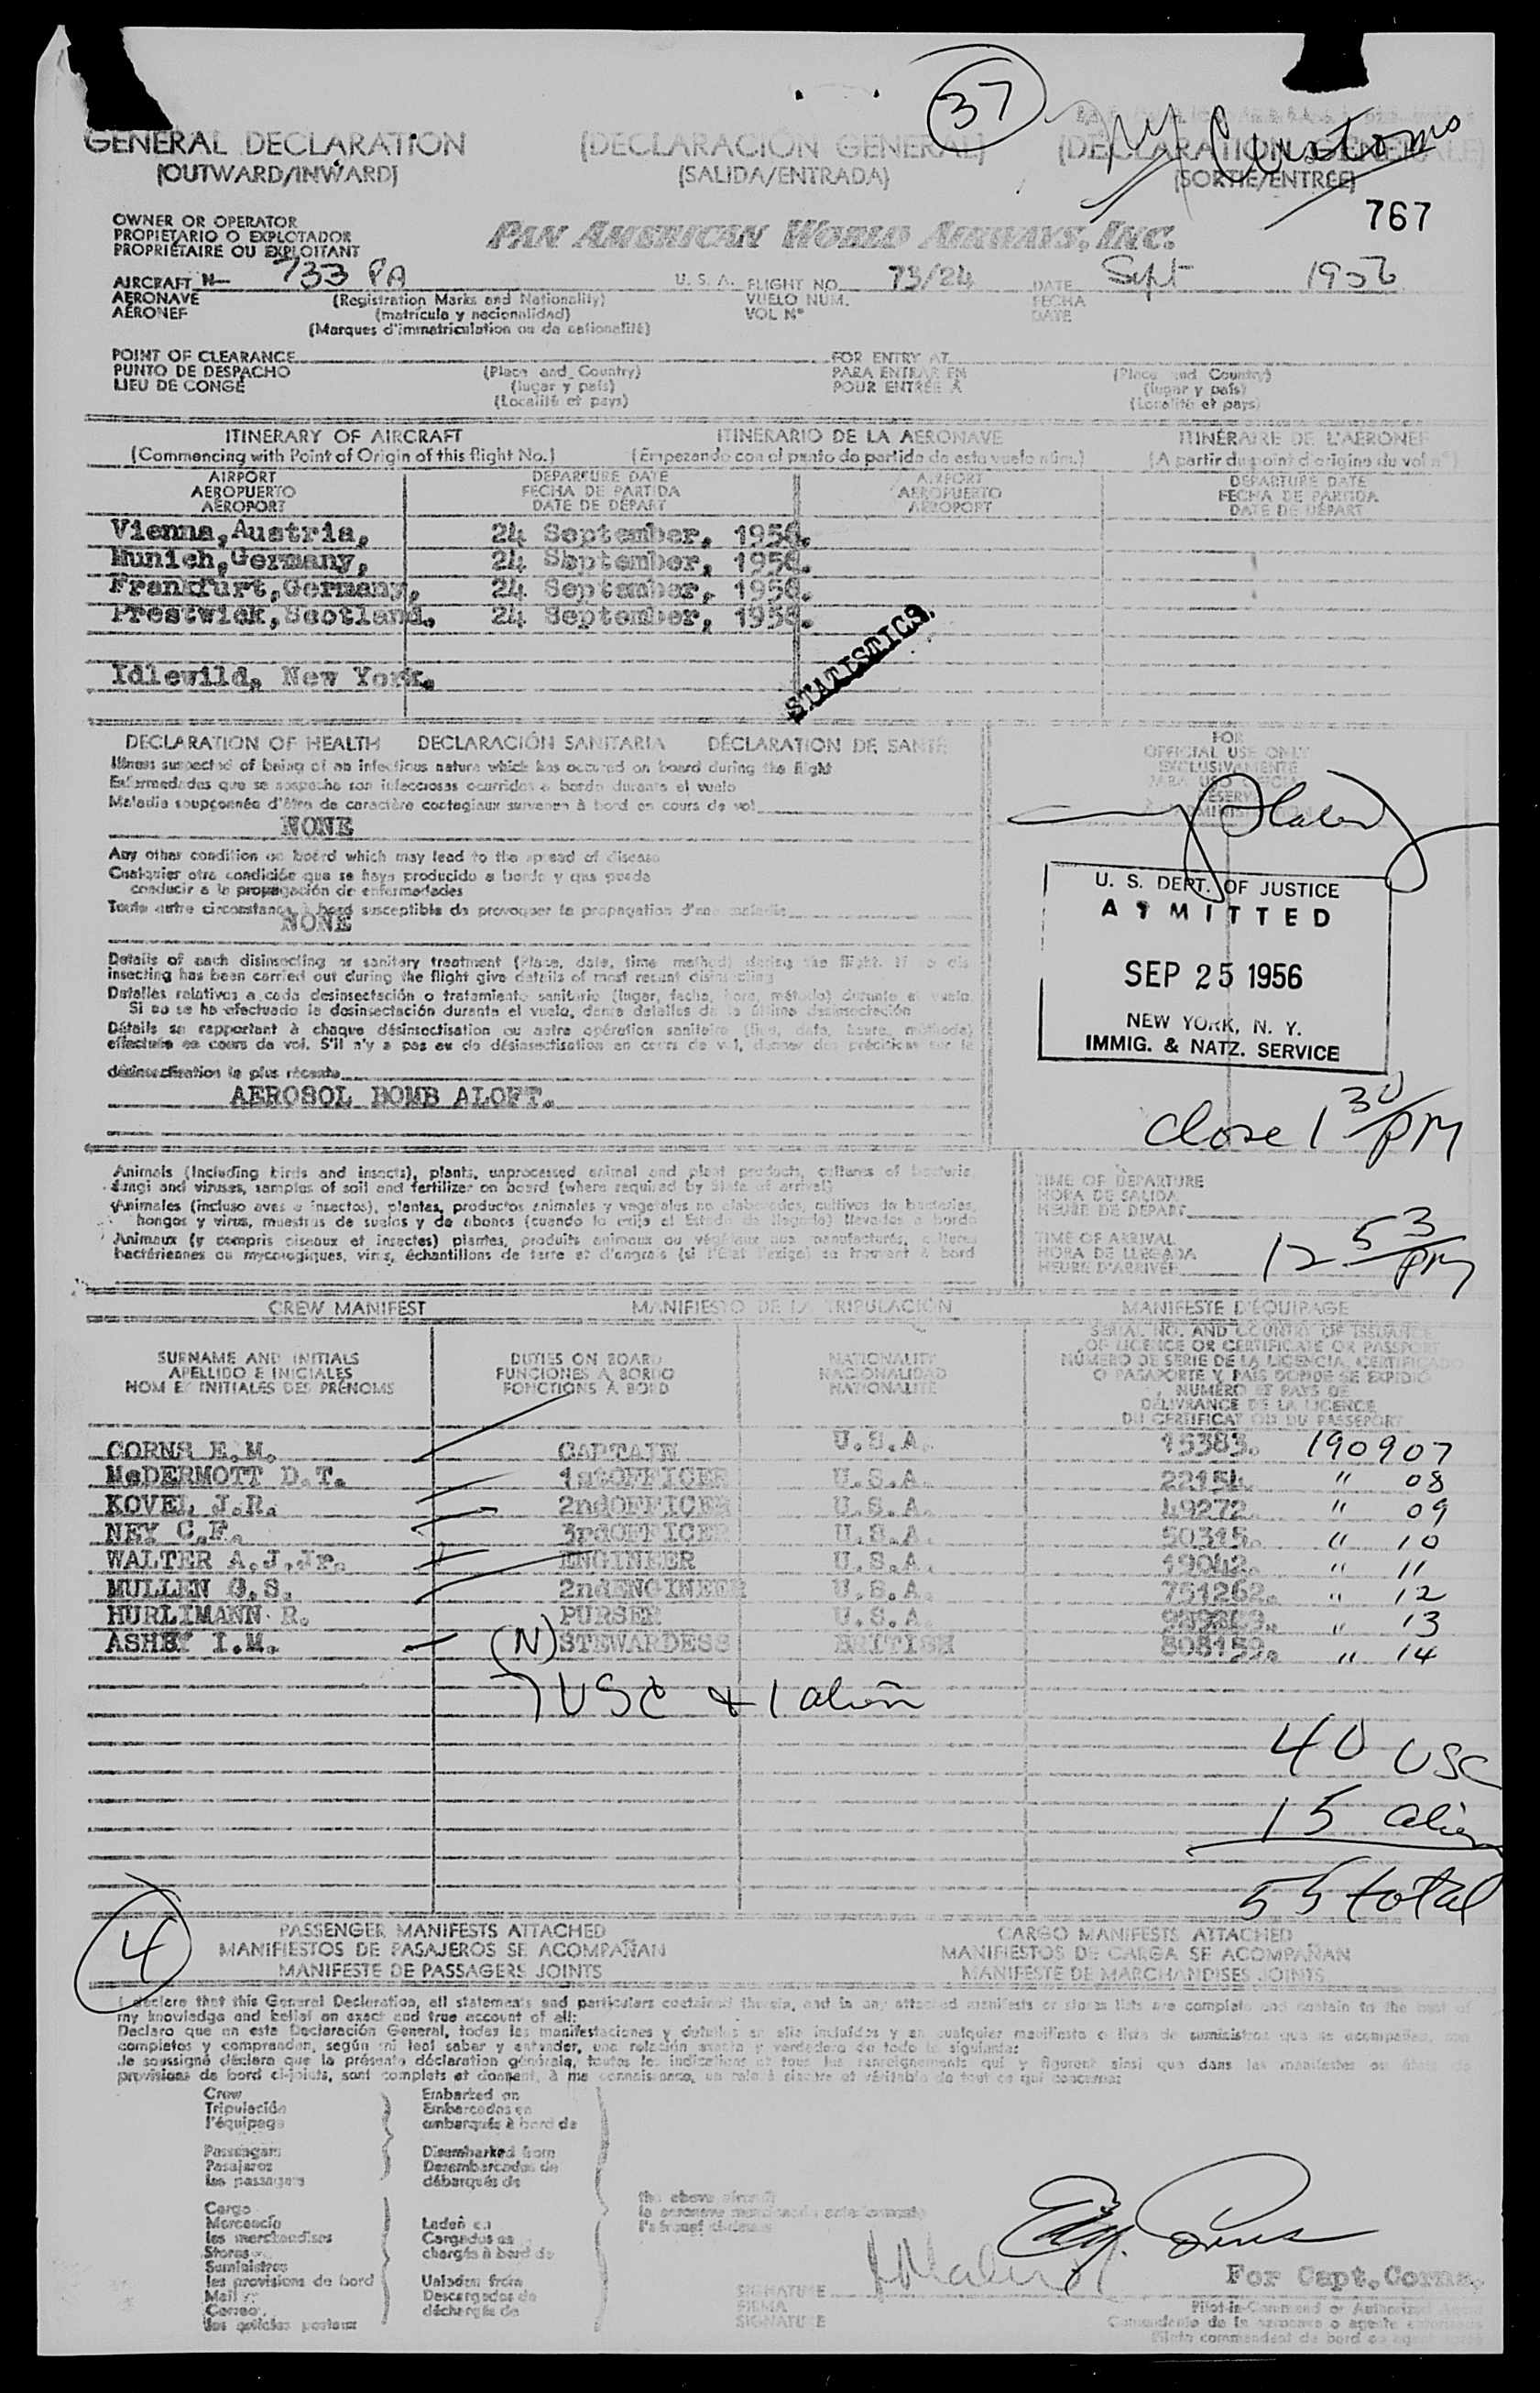 37
Customs
GENERAL DECLARATION (DECLARACIÓN GENERAL) (DÉCLARATION GÉNÉRALE)
(OUTWARD/INWARD) (SALIDA/ENTRADA) (SORTIE/ENTRÉE)
767
OWNER OR OPERATOR
PROPIETARIO O EXPLOTADOR
PROPRIÉTAIRE OU EXPLOITANT
PAN AMERICAN WORLD AIRWAYS, INC.
AIRCRAFT N- 733 PA U. S. A. FLIGHT NO. 73/24 DATE Sept 1956
AERONAVE (Registration Marks and Nationality) VUELO NÚM. FECHA
AÉRONEF (matrícula y nacionalidad) VOL Nº DATE
(Marques d'immatriculation ou de nationalité)
POINT OF CLEARANCE FOR ENTRY AT
PUNTO DE DESPACHO (Place and Country) PARA ENTRAR EN (Place and Country)
LIEU DE CONGÉ (lugar y país) POUR ENTRÉE À (lugar y país)
(Localité et pays) (Localité et pays)
ITINERARY OF AIRCRAFT ITINERARIO DE LA AERONAVE ITINÉRAIRE DE L'AÉRONEF
(Commencing with Point of Origin of this flight No.) (Empezando con el punto de partida de este vuelo núm.) (A partir du point d'origine du vol nº)
AIRPORT DEPARTURE DATE AIRPORT DEPARTURE DATE
AEROPUERTO FECHA DE PARTIDA AEROPUERTO FECHA DE PARTIDA
AÉROPORT DATE DE DÉPART AÉROPORT DATE DE DÉPART
Vienna, Austria, 24 September, 1956.
Munich, Germany, 24 September, 1956.
Frankfurt, Germany, 24 September, 1956.
Prestwick, Scotland. 24 September, 1956.
STATISTICS.
Idlewild, New York.
DECLARATION OF HEALTH DECLARACIÓN SANITARIA DÉCLARATION DE SANTÉ
Illness suspected of being of an infectious nature which has occured on board during the flight
Enfermedades que se sospecha son infecciosas ocurridas a bordo durante el vuelo
Maladie soupçonnée d'être de caractère contagieux survenue à bord en cours de vol
NONE
Any other condition on board which may lead to the spread of disease
Cualquier otra condición que se haya producido a bordo y que pueda
conducir a la propagación de enfermedades
Toute autre circonstance à bord susceptible de provoquer la propagation d'une maladie
NONE
Details of each disinsecting or sanitary treatment (Place, date, time method) during the flight. If no dis-
insecting has been carried out during the flight give details of most recent disinsecting
Detalles relativos a cada desinsectación o tratamiento sanitario (lugar, fecha, hora, método) durante el vuelo.
Si no se ha efectuado la desinsectación durante el vuelo, dense detalles de la última desinsectación
Détails se rapportant à chaque désinsectisation ou autre opération sanitaire (lieu, date, heure, méthode)
effectuée en cours de vol. S'il n'y a pas eu de désinsectisation en cours de vol, donner des précisions sur la
désinsectisation la plus récente
AEROSOL BOMB ALOFT.
FOR
OFFICIAL USE ONLY
EXCLUSIVAMENTE
PARA USO OFICIAL
RÉSERVÉ
U. S. DEPT. OF JUSTICE
ADMITTED
SEP 25 1956
NEW YORK, N. Y.
IMMIG. & NATZ. SERVICE
close 1 30/PM
Animals (including birds and insects), plants, unprocessed animal and plant products, cultures of bacteria,
fungi and viruses, samples of soil and fertilizer on board (where required by State of arrival)
Animales (incluso aves e insectos), plantas, productos animales y vegetales no elaborados, cultivos de bacterias,
hongos y virus, muestras de suelos y de abonos (cuando lo exija el Estado de llegada) llevados a bordo
Animaux (y compris oiseaux et insectes) plantes, produits animaux ou végétaux non manufacturés, cultures
bactériennes ou mycologiques, virus, échantillons de terre et d'engrais (si l'État l'exige) se trouvant à bord
TIME OF DEPARTURE
HORA DE SALIDA
HEURE DE DÉPART
TIME OF ARRIVAL
HORA DE LLEGADA
HEURE D'ARRIVÉE
12 53/PM
CREW MANIFEST MANIFIESTO DE LA TRIPULACIÓN MANIFESTE D'ÉQUIPAGE
SURNAME AND INITIALS DUTIES ON BOARD NATIONALITY SERIAL NO. AND COUNTRY OF ISSUANCE
APELLIDO E INICIALES FUNCIONES A BORDO NACIONALIDAD OF LICENCE OR CERTIFICATE OR PASSPORT
NOM ET INITIALES DES PRÉNOMS FONCTIONS À BORD NATIONALITÉ NÚMERO DE SERIE DE LA LICENCIA, CERTIFICADO
O PASAPORTE Y PAÍS DONDE SE EXPIDIÓ
NUMÉRO ET PAYS DE
DÉLIVRANCE DE LA LICENCE
DU CERTIFICAT OU DU PASSEPORT
CORNS E.M. CAPTAIN U.S.A. 15383. 190907
McDERMOTT D.T. 1stOFFICER U.S.A. 22154. " 08
KOVEL J.R. 2ndOFFICER U.S.A. 49272. " 09
NEY C.F. 3rdOFFICER U.S.A. 50315. " 10
WALTER A.J.Jr. ENGINEER U.S.A. 19042. " 11
MULLEN G.S. 2ndENGINEER U.S.A. 751262. " 12
HURLIMANN R. PURSER U.S.A. " 13
ASHBY I.M. (N) STEWARDESS BRITISH 808152. " 14
7 USC & 1 alien
40 USC
15 alien
55 total
4
PASSENGER MANIFESTS ATTACHED CARGO MANIFESTS ATTACHED
MANIFIESTOS DE PASAJEROS SE ACOMPAÑAN MANIFIESTOS DE CARGA SE ACOMPAÑAN
MANIFESTE DE PASSAGERS JOINTS MANIFESTE DE MARCHANDISES JOINTS
I declare that this General Declaration, all statements and particulars contained therein, and in any attached manifests or stores lists are complete and contain to the best of
my knowledge and belief an exact and true account of all:
Declaro que en esta Declaración General, todas las manifestaciones y detalles en ella incluídos y en cualquier manifiesto o lista de suministros que se acompañen, son
completos y comprenden, según mi leal saber y entender, una relación exacta y verdadera de todo lo siguiente:
Je soussigné déclare que la présente déclaration générale, toutes les indications et tous les renseignements qui y figurent ainsi que dans les manifestes ou états de
provisions de bord ci-joints, sont complets et donnent, à ma connaissance, un relevé sincère et véritable de tout ce qui concerne:
Crew Embarked on
Tripulación Embarcados en
l'équipage embarqués à bord de
Passengers Disembarked from
Pasajeros Desembarcados de
les passagers débarqués de
Cargo
Mercancía Laden on
les marchandises Cargados en
Stores chargés à bord de
Suministros
les provisions de bord Unladen from
Mail Descargados de
Correo déchargés de
les articles postaux
the above aircraft
la aeronave mencionada anteriormente
l'aéronef ci-dessus
SIGNATURE
FIRMA
SIGNATURE
For Capt. Corns.
Pilot-in-Command or Authorized Agent
Comandante de la aeronave o agente autorizado
Pilote commandant de bord ou agent